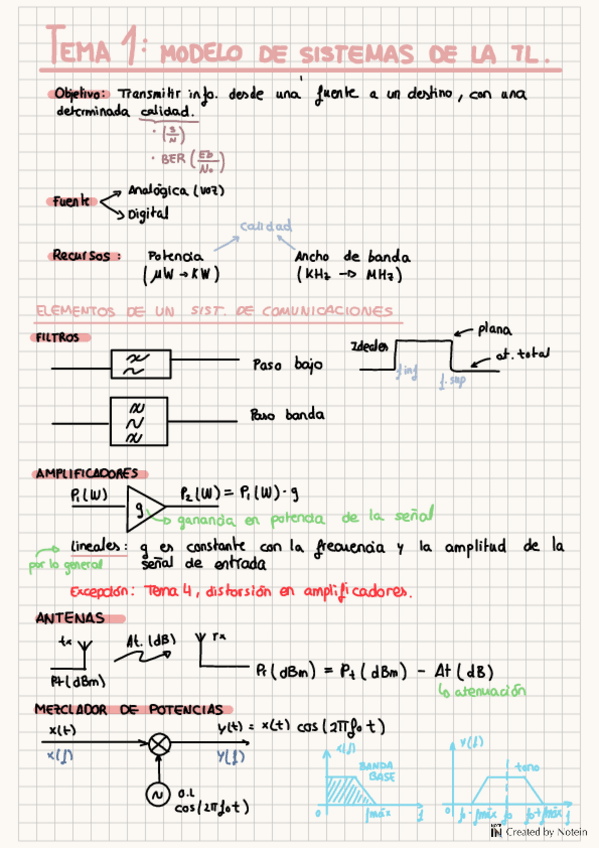 TEMA 1: MODELO DE SISTEMAS DE LA TL.
Objetivo: Transmitir info. desde una fuente a un destino, con una
determinada calidad.
· (S/N)
· BER (Eb/No)
Fuente
Analógica (voz)
Digital
calidad
Recursos: Potencia Ancho de banda
(μW → KW) (KHz → MHz)
ELEMENTOS DE UN SIST. DE COMUNICACIONES
FILTROS
Paso bajo
Ideales
plana
at. total
f inf
f. sup
Paso banda
AMPLIFICADORES
P₁(W)
g
P₂(W) = P₁(W) · g
ganancia en potencia de la señal
lineales: g es constante con la frecuencia y la amplitud de la
por lo general señal de entrada
Excepción: Tema 4, distorsión en amplificadores.
ANTENAS
tx At. (dB) rx
Pt(dBm)
Pr(dBm) = Pt(dBm) - At(dB)
atenuación
MEZCLADOR DE POTENCIAS
x(t)
y(t) = x(t) cos(2πf₀t)
X(f)
Y(f)
O.L
cos(2πf₀t)
X(f)
BANDA
BASE
0 fmáx f
Y(f)
tono
0 f₀-fmáx f₀ f₀+fmáx f
NOTE
IN
Created by Notein